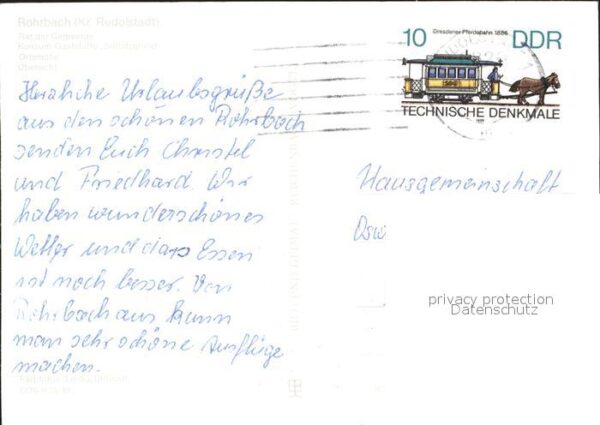 Rohrbach (Kr. Rudolstadt)
Rat der Gemeinde
Konsum Gaststätte
Ortsmitte
Übersicht
Herzliche Urlaubsgrüße
aus den schönen Rohrbach
senden Euch Christel
und Friedhard. Wir
haben wunderschönes
Wetter und das Essen
ist noch besser. Von
Rohrbach aus kann
man sehr schöne Ausflüge
machen.
Dresdener Pferdebahn 1886
10 DDR
TECHNISCHE DENKMALE
Hausgemeinschaft
Osw
privacy protection
Datenschutz